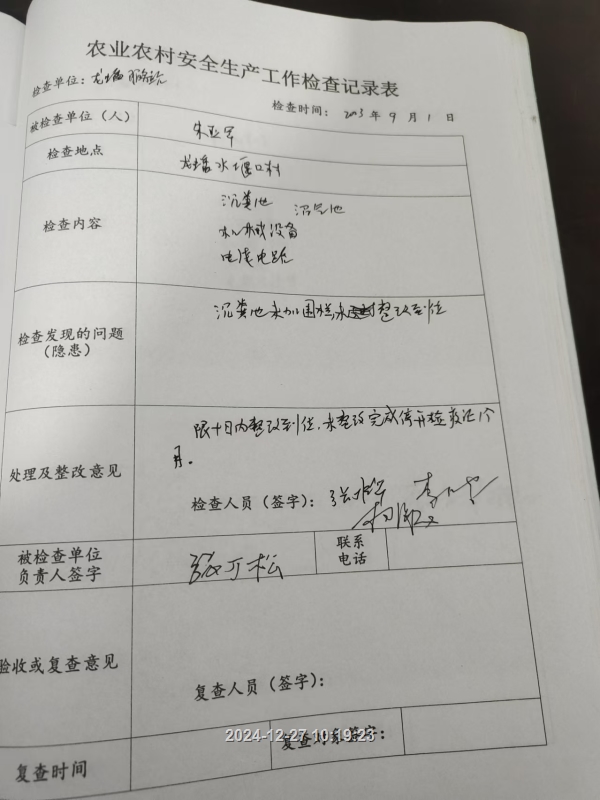 农业农村安全生产工作检查记录表
检查单位：龙塘
检查时间：2023年9月1日
被检查单位（人） 朱亚军
检查地点 龙塘水堰口村
检查内容 沉粪池 沼气池
机械设备
电线电路
检查发现的问题（隐患） 沉粪池未加围栏,未 整改到位
处理及整改意见 限十日内整改到位,未整改完成停开检疫证1个
月.
检查人员（签字）：
被检查单位负责人签字
联系电话
验收或复查意见
复查人员（签字）：
复查时间
复查对象签字：
2024-12-27 10:19:23